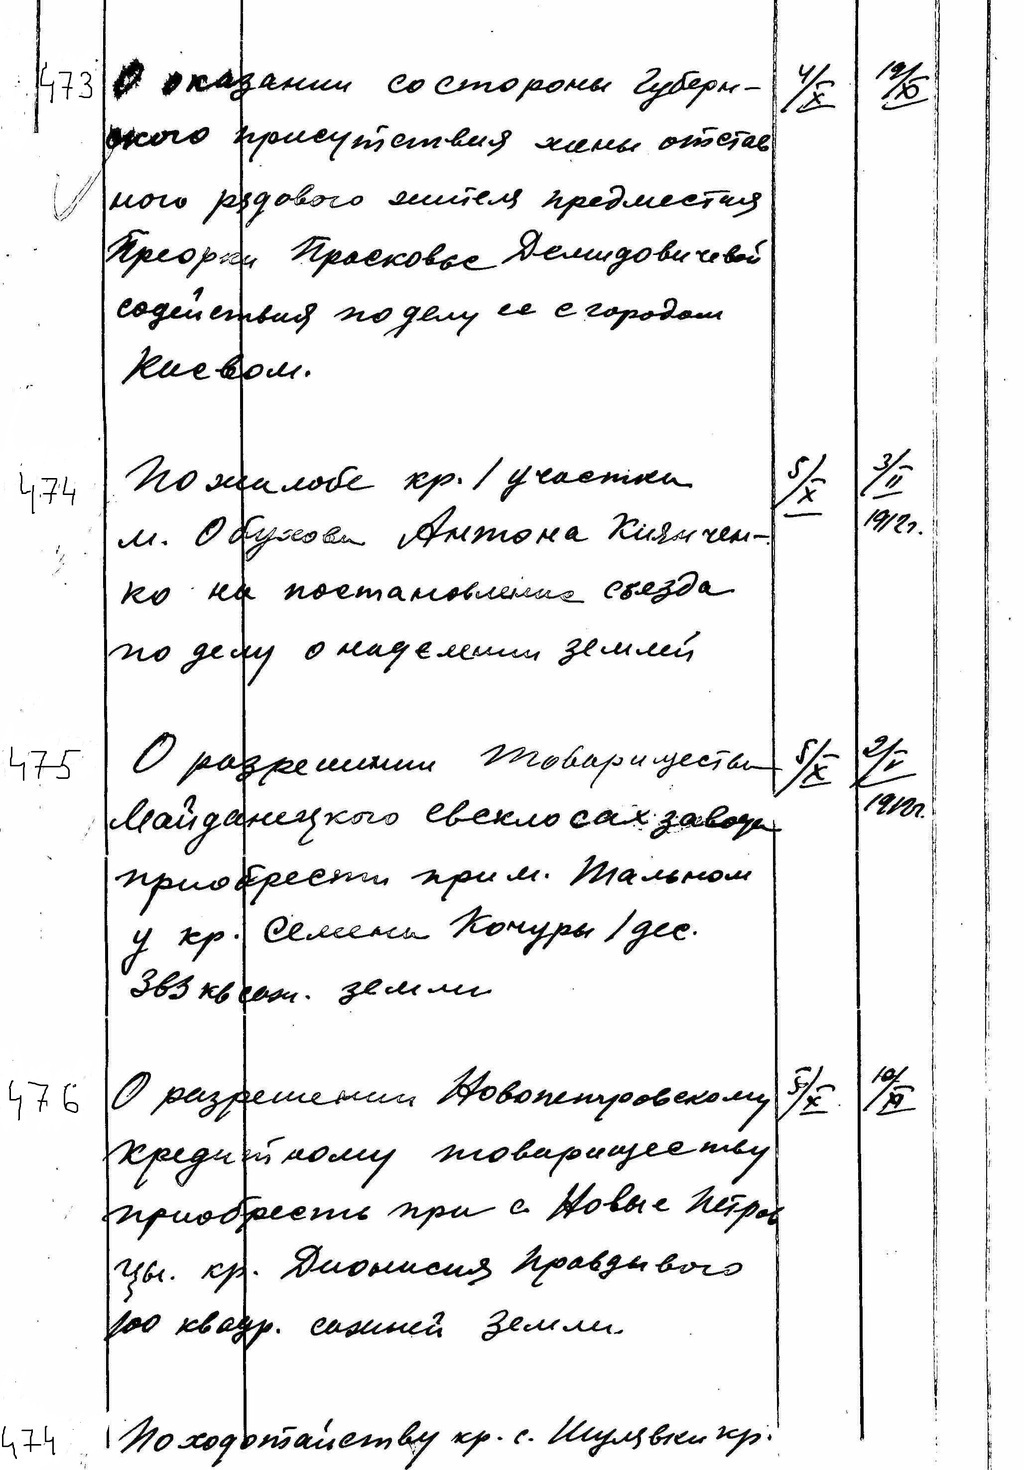 473 О оказании со стороны Губерн- 4/X 19/XI
ского присутствия жены отстав
ного рядового жителя предместия
Преорки Прасковье Демидовичевой
содействия по делу ее с городом
Киевом.
474 По жалобе кр. 1 участка 5/X 3/II
м. Обухова Антона Киянчен- 1912г.
ко на постановление съезда
по делу о наделении землей
475 О разрешении товариществу 5/X 2/V
Майданецкого свеклосах завода 1912г.
приобрести при м. Тальном
у кр. Семена Кочуры 1 дес.
383 кв саж. земли
476 О разрешении Новопетровскому 5/X 10/XI
кредитному товариществу
приобресть при с. Новые Петров
цы. кр. Дионисия Правдывого
100 квадр. сажней земли.
474 По ходотайству кр. с. Шулявки кр.